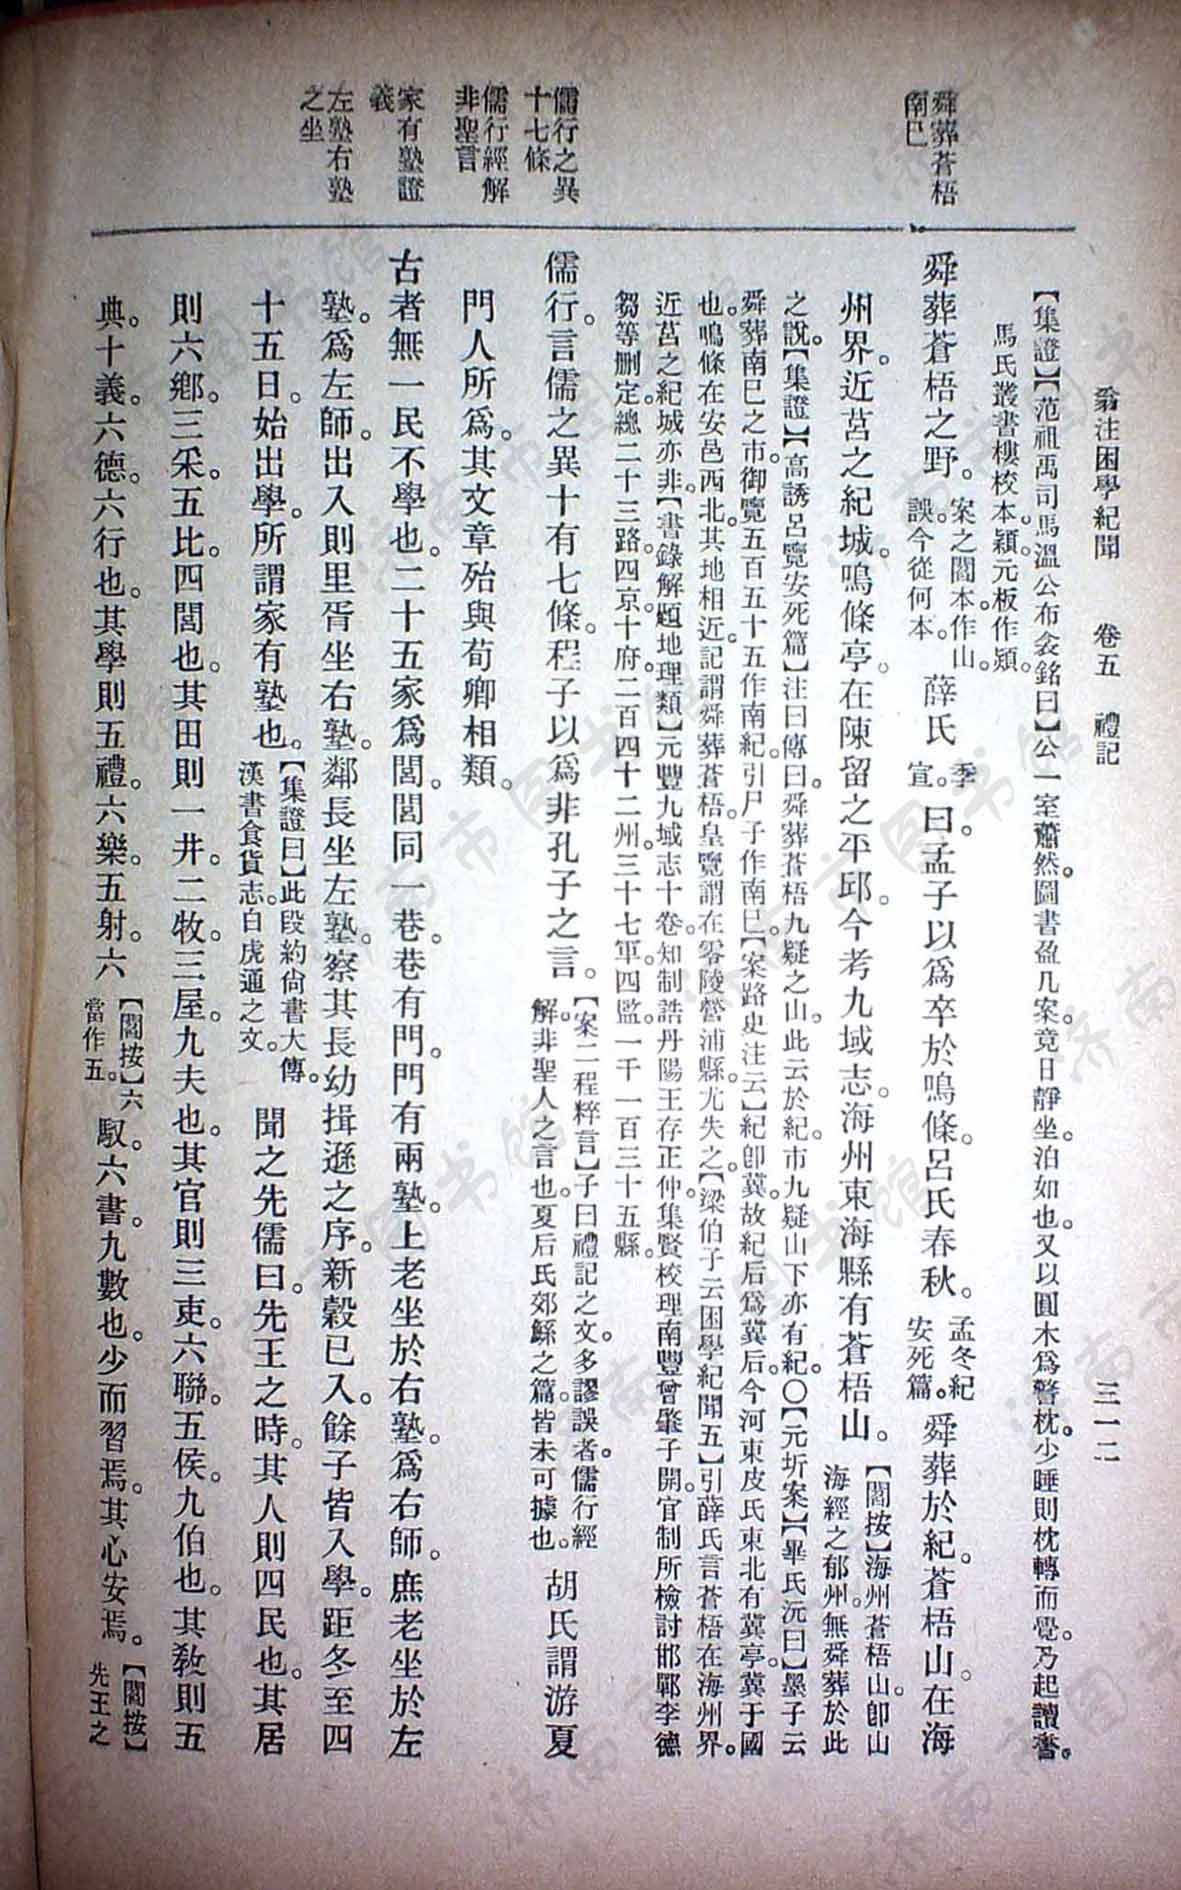 翁注困學紀聞　卷五　禮記　三一二
舜葬蒼梧
南巳
儒行之異
十七條
儒行經解
非聖言
家有塾證
義
左塾右塾
之坐
【集證】【范祖禹司馬溫公布衾銘曰】公一室蕭然。圖書盈几案。竟日靜坐。泊如也。又以圓木爲警枕。少睡則枕轉而覺。乃起讀書。
馬氏叢書樓校本。潁元板作潁。
舜葬蒼梧之野。案之閻本作山。誤今從何本。薛氏季宣。曰。孟子以爲卒於鳴條。呂氏春秋。孟冬紀安死篇。舜葬於紀。蒼梧山。在海
州界。近莒之紀城。鳴條亭。在陳留之平邱。今考九域志。海州東海縣有蒼梧山。【閻按】海州蒼梧山。卽山海經之郁州。無舜葬於此
之說。【集證】【高誘呂覽安死篇】注曰。傳曰。舜葬蒼梧九疑之山。此云於紀市。九疑山下亦有紀。〇【元圻案】【畢氏沅曰】墨子云
舜葬南巳之市。御覽五百五十五作南紀。引尸子作南巳。【案路史注云】紀卽冀。故紀后爲冀后。今河東皮氏東北有冀亭。冀于國
也。鳴條在安邑西北。其地相近。記謂舜葬蒼梧。皇覽謂在零陵營浦縣。尤失之。【梁伯子云困學紀聞五】引薛氏言蒼梧在海州界。
近莒之紀城亦非。【書錄解題地理類】元豐九域志十卷。知制誥丹陽王存正仲。集賢校理南豐曾肇子開。官制所檢討邯鄲李德
芻等删定。總二十三路。四京。十府。二百四十二州。三十七軍。四監。一千一百三十五縣。
儒行。言儒之異十有七條。程子以爲非孔子之言。【案二程粹言】子曰。禮記之文。多謬誤者。儒行經解。非聖人之言也。夏后氏郊鯀之篇。皆未可據也。胡氏謂游夏
門人所爲。其文章殆與荀卿相類。
古者無一民不學也。二十五家爲閭。閭同一巷。巷有門。門有兩塾。上老坐於右塾。爲右師。庶老坐於左
塾。爲左師。出入則里胥坐右塾。鄰長坐左塾。察其長幼揖遜之序。新穀已入。餘子皆入學。距冬至四
十五日。始出學。所謂家有塾也。【集證曰】此段約尙書大傳。漢書食貨志。白虎通之文。聞之先儒曰。先王之時。其人則四民也。其居
則六鄉。三采五比。四閭也。其田則一井。二牧。三屋。九夫也。其官則三吏。六聯。五侯。九伯也。其敎則五
典。十義。六德。六行也。其學則五禮。六樂。五射。六【閻按】六當作五。馭。六書。九數也。少而習焉。其心安焉。【閻按】先王之